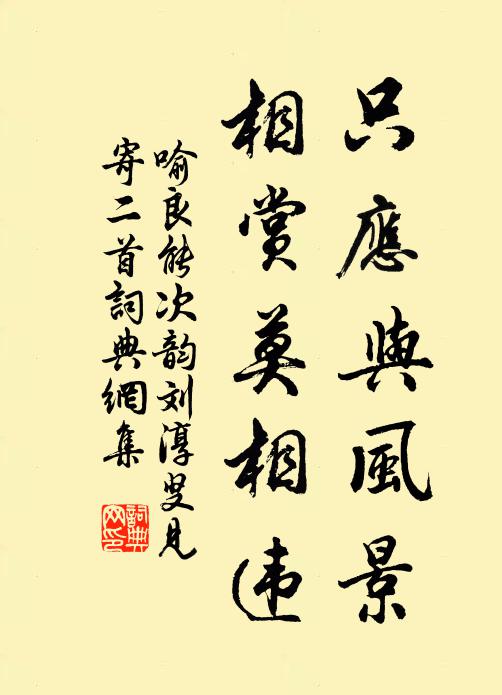 只應與風景
相賞莫相違
喻良能次韵刘淳叟见
寄二首詞典網集
詞典
网印